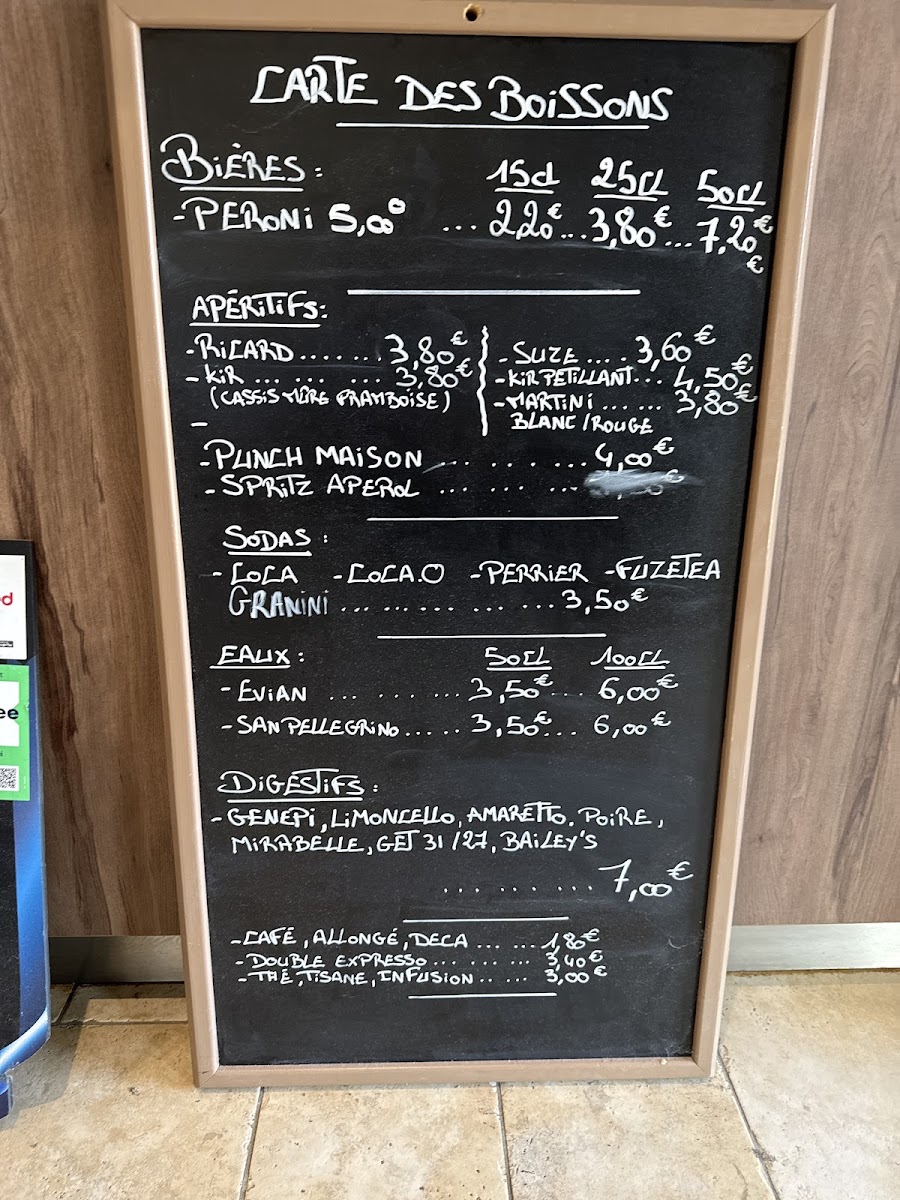 CARTE DES BOISSONS
BIÈRES : 15cl 25CL 50CL
- PERONI 5,00° ... 2,20€ ... 3,80€ ... 7,20€
€
APÉRITIFS :
- RICARD ....... 3,80€
- KIR ... ... ... ... 3,80€
(CASSIS MÛRE FRAMBOISE)
-
- SUZE .... 3,60€
- KIR PETILLANT... 4,50€
- MARTINI ... ... 3,80€
BLANC / ROUGE
- PUNCH MAISON ... . . . ... 4,00€
- SPRITZ APEROL ... ... ... €
SODAS :
- COCA - COCA.O - PERRIER - FUZETEA
GRANINI ... ... ... ... ... 3,50€
EAUX : 50CL 100CL
- EVIAN ... ....... 3,50€ ... 6,00€
- SANPELLEGRINO ... .. 3,50€ ... 6,00€
DIGÉSTIFS :
- GENEPI, LIMONCELLO, AMARETTO. POIRE,
MIRABELLE, GET 31 /27, BAILEY'S
... .. . ... 7,00€
- CAFÉ, ALLONGÉ, DECA ... ... 1,80€
- DOUBLE EXPRESSO ... ... ... 3,40€
- THÉ, TISANE, INFUSION .. ... 3,00€
d
ee